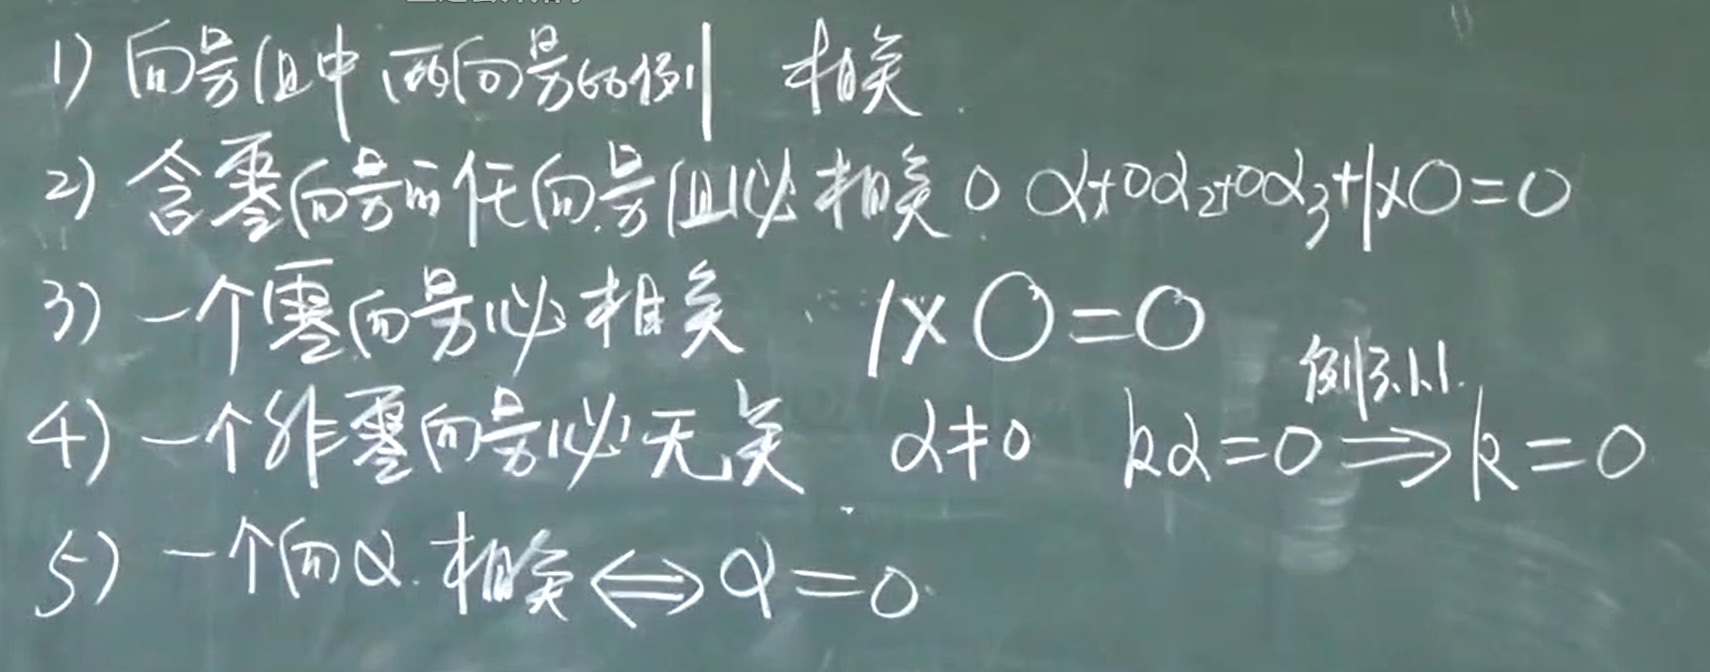 1) 向量组中两向量成比例 相关.
2) 含零向量的任向量组必相关. 0α₁+0α₂+0α₃+1×0=0
3) 一个零向量必相关 1×0=0
4) 一个非零向量必无关 α≠0 kα=0 ⟹ k=0
例3.1.1.
5) 一个向α.相关⟺α=0.